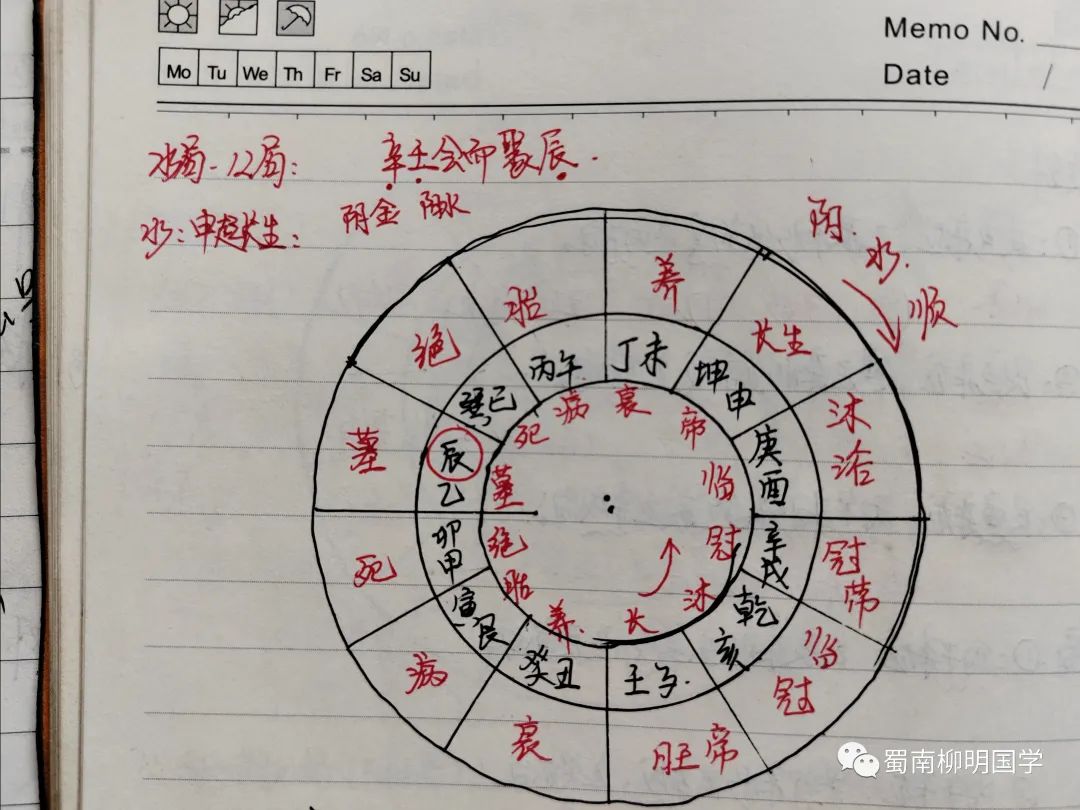 Memo No.
Date /
Mo Tu We Th Fr Sa Su
水局-12局: 辛壬会而聚辰.
阴金 阳水
水:申起长生:
阳.
水.
顺
养
长生
沐浴
冠带
临冠
帝旺
衰
病
死
墓
绝
胎
丁未
坤申
庚酉
辛戌
乾亥
壬子.
癸丑
寅艮
卯甲
辰乙
巽巳
丙午
衰
帝
临
冠
沐
长
养.
胎
绝
墓
死
病
蜀南柳明国学